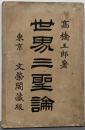 高橋五郎著
世界三聖論
東京 文榮閣藏版